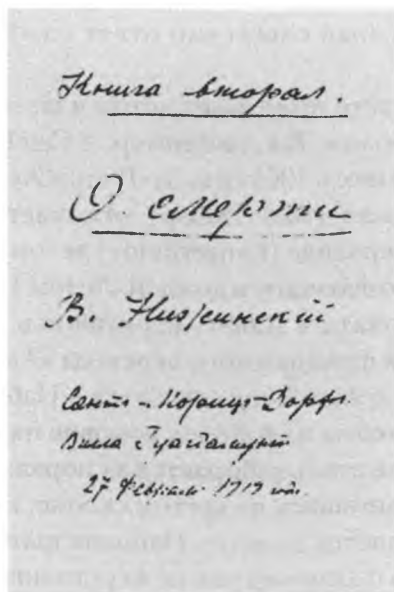 Книга вторая.
О смерти
В. Нижинский
Санкт-Мориц-Дорф
Вила Гуардамунт
27 Февраля 1919 года.